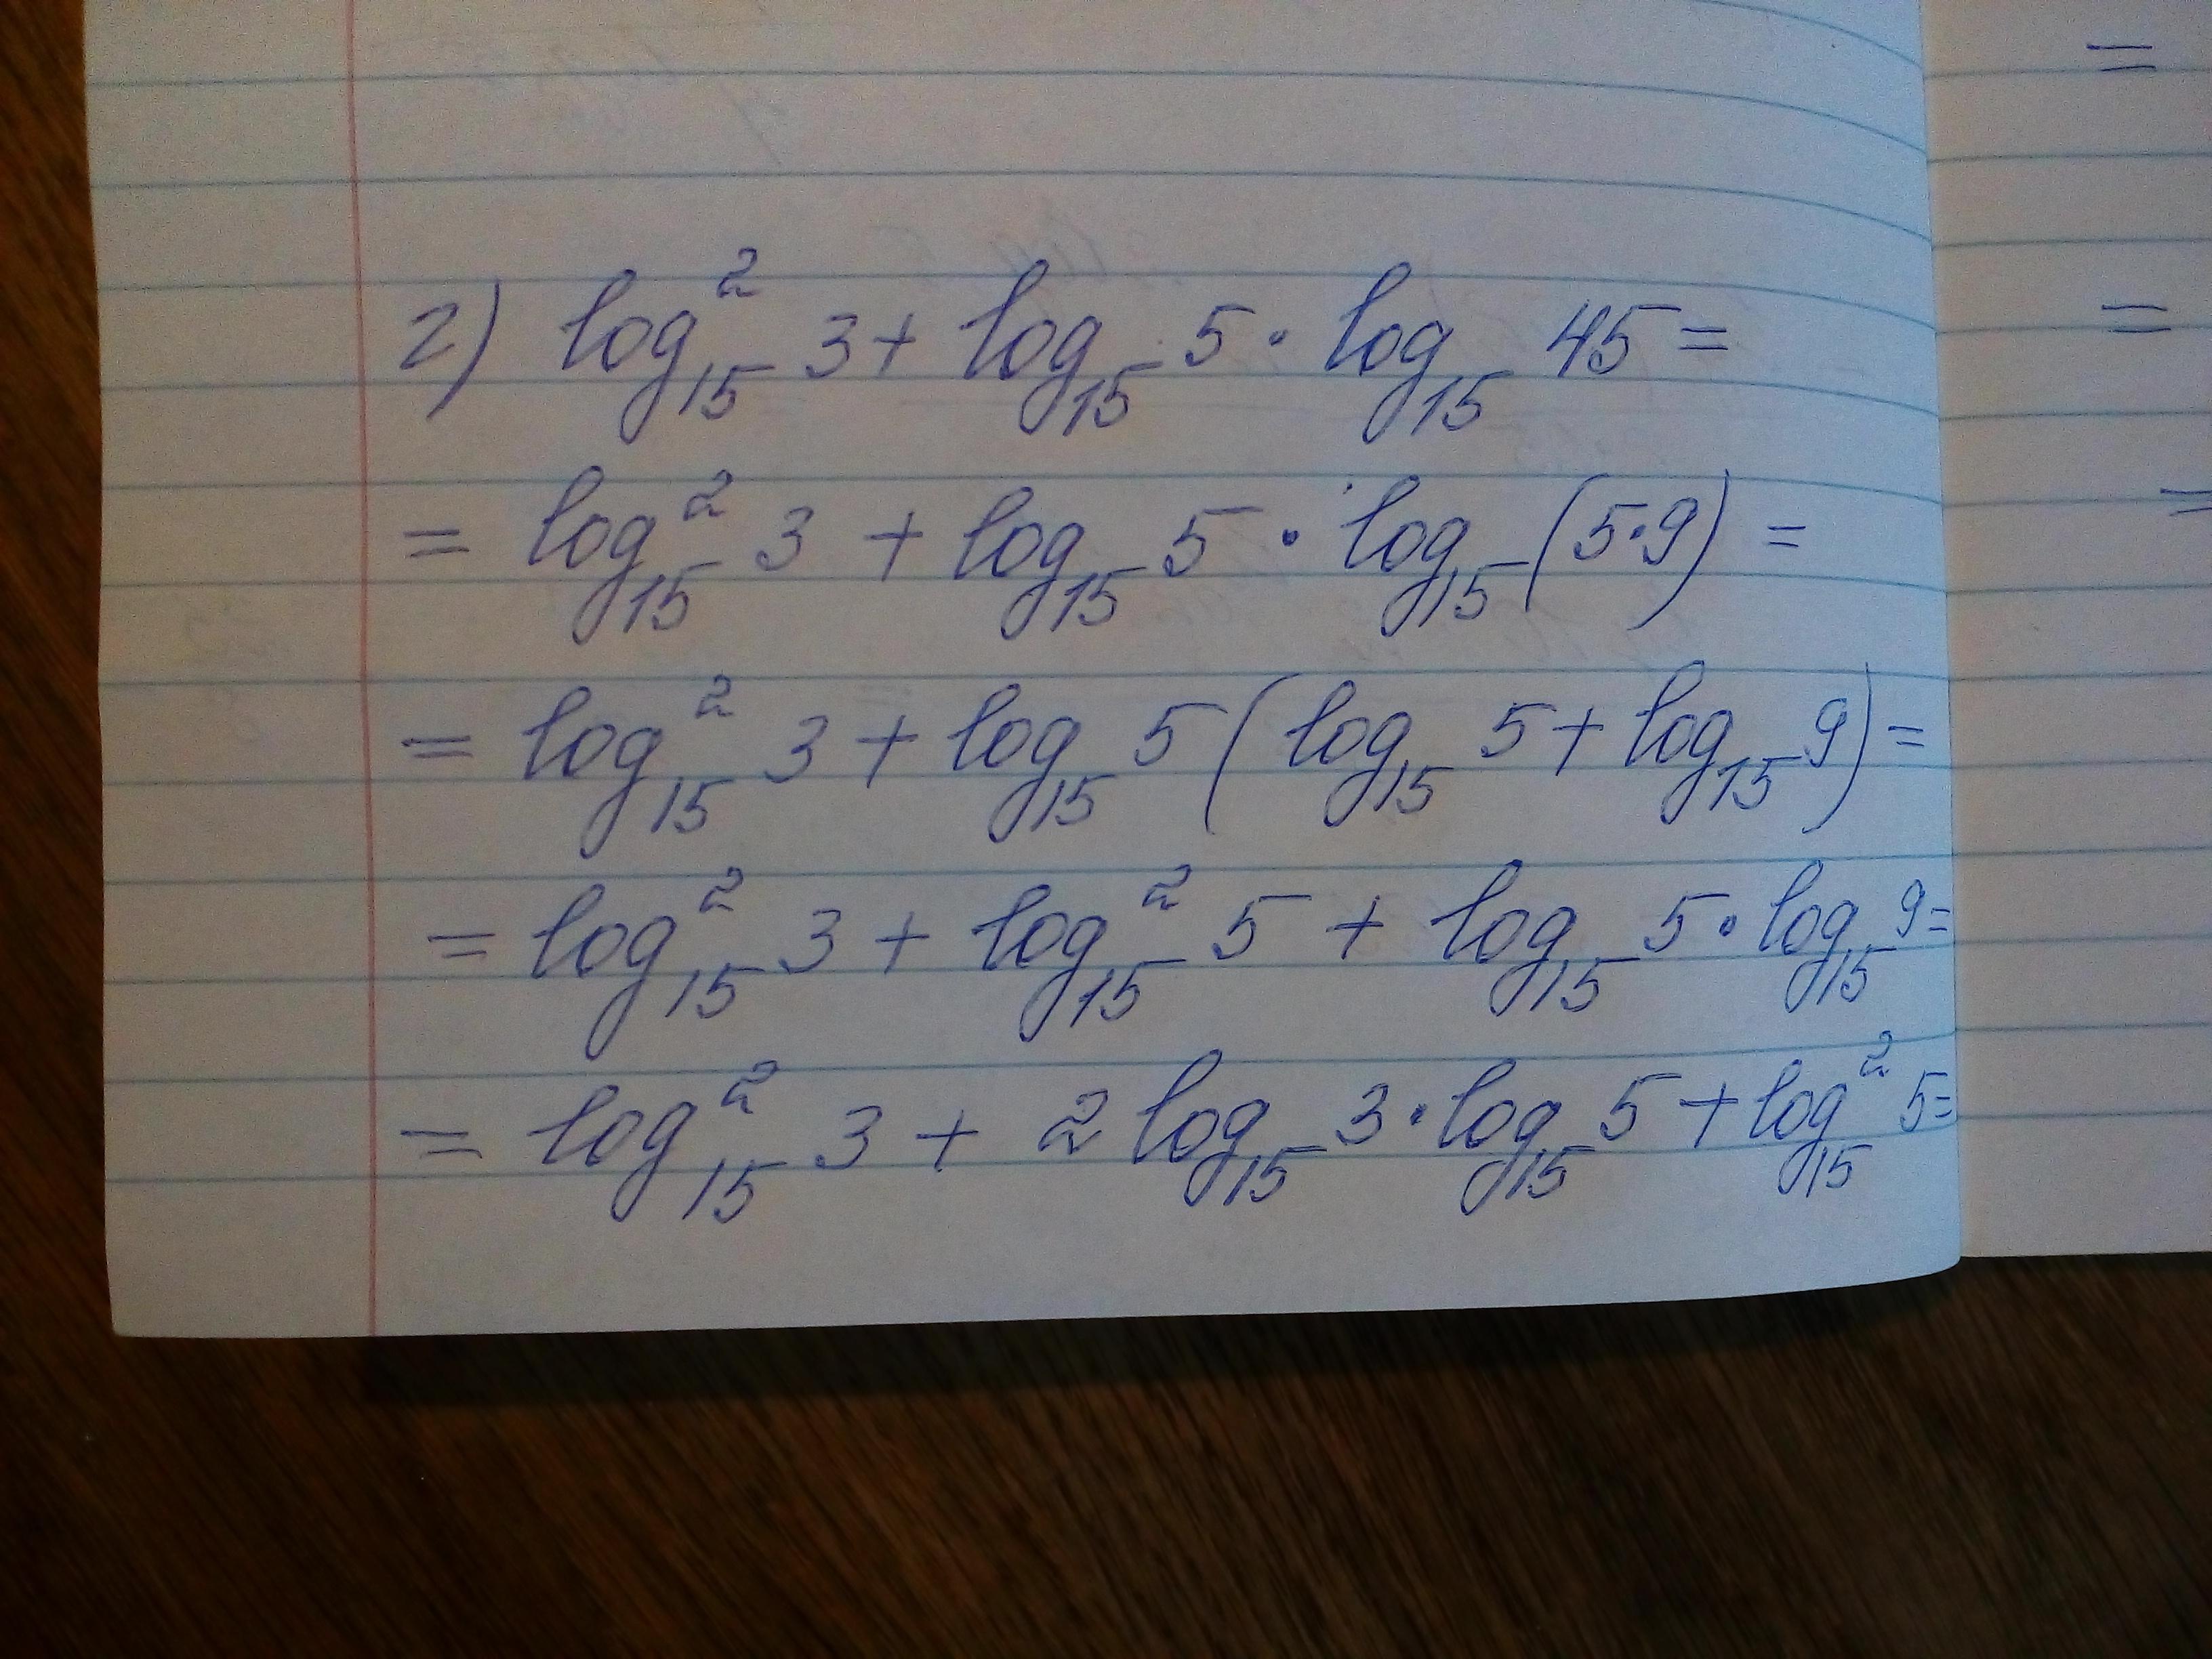 2) log²₁₅ 3 + log₁₅ 5 · log₁₅ 45 =
= log²₁₅ 3 + log₁₅ 5 · log₁₅ (5·9) =
= log²₁₅ 3 + log₁₅ 5 ( log₁₅ 5 + log₁₅ 9 ) =
= log²₁₅ 3 + log²₁₅ 5 + log₁₅ 5 · log₁₅ 9 =
= log²₁₅ 3 + 2 log₁₅ 3 · log₁₅ 5 + log²₁₅ 5 =
=
=
=